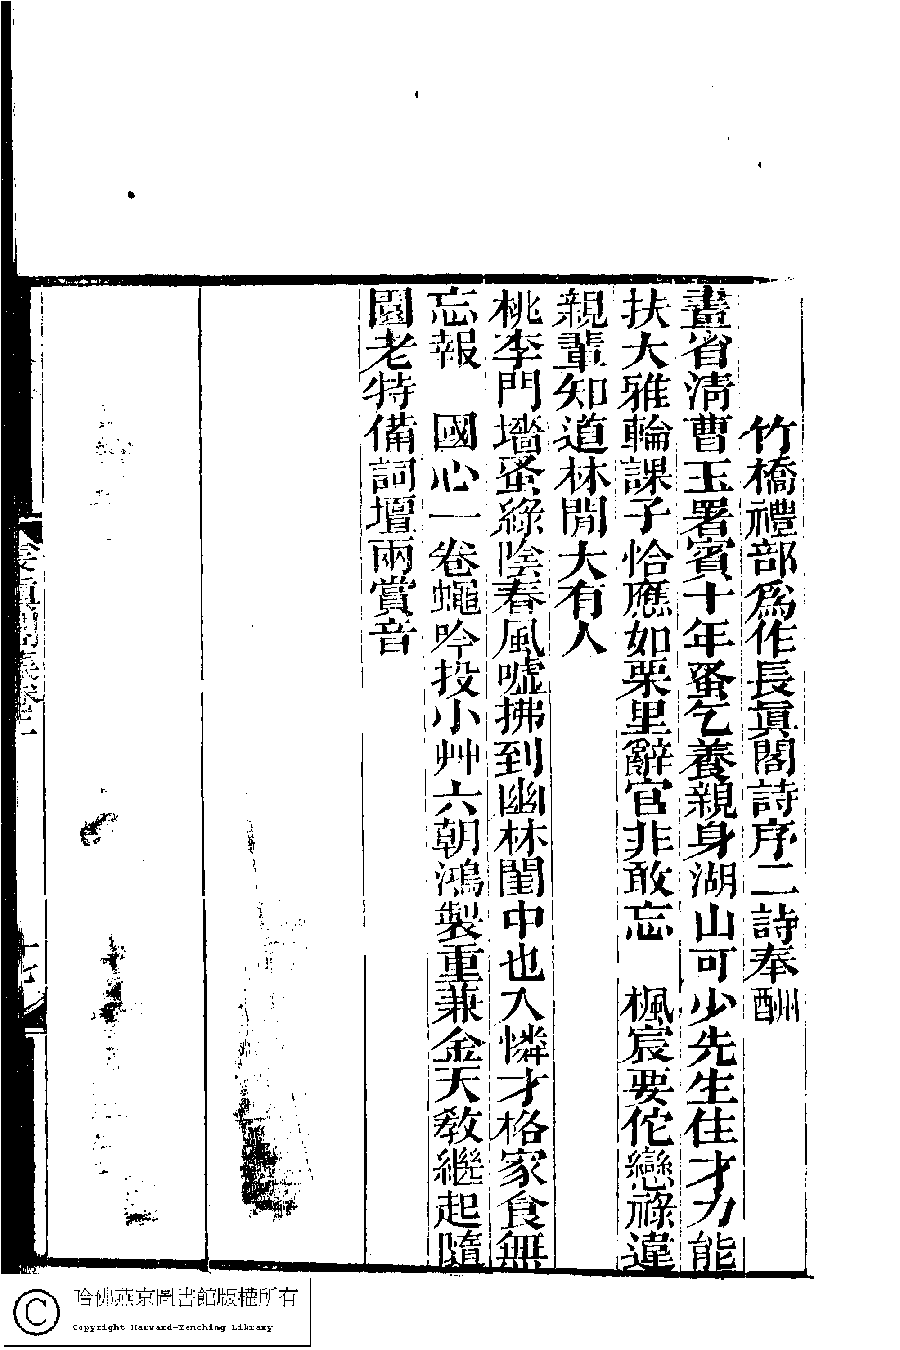 竹橋禮部爲作長眞閣詩序二詩奉酬
畫省淸曹玉署賓十年蚤乞養親身湖山可少先生住才力能
扶大雅輪課子恰應如栗里辭官非敢忘　楓宸要佗戀祿違
親輩知道林閒大有人
桃李門墻蚤綠陰春風噓拂到幽林閨中也入憐才格家食無
忘報　國心一卷蠅吟投小艸六朝鴻製重兼金天敎繼起隨
園老特備詞壇兩賞音
長眞閣集卷二
十七
哈佛燕京圖書館版權所有
Copyright Harvard-Yenching Library